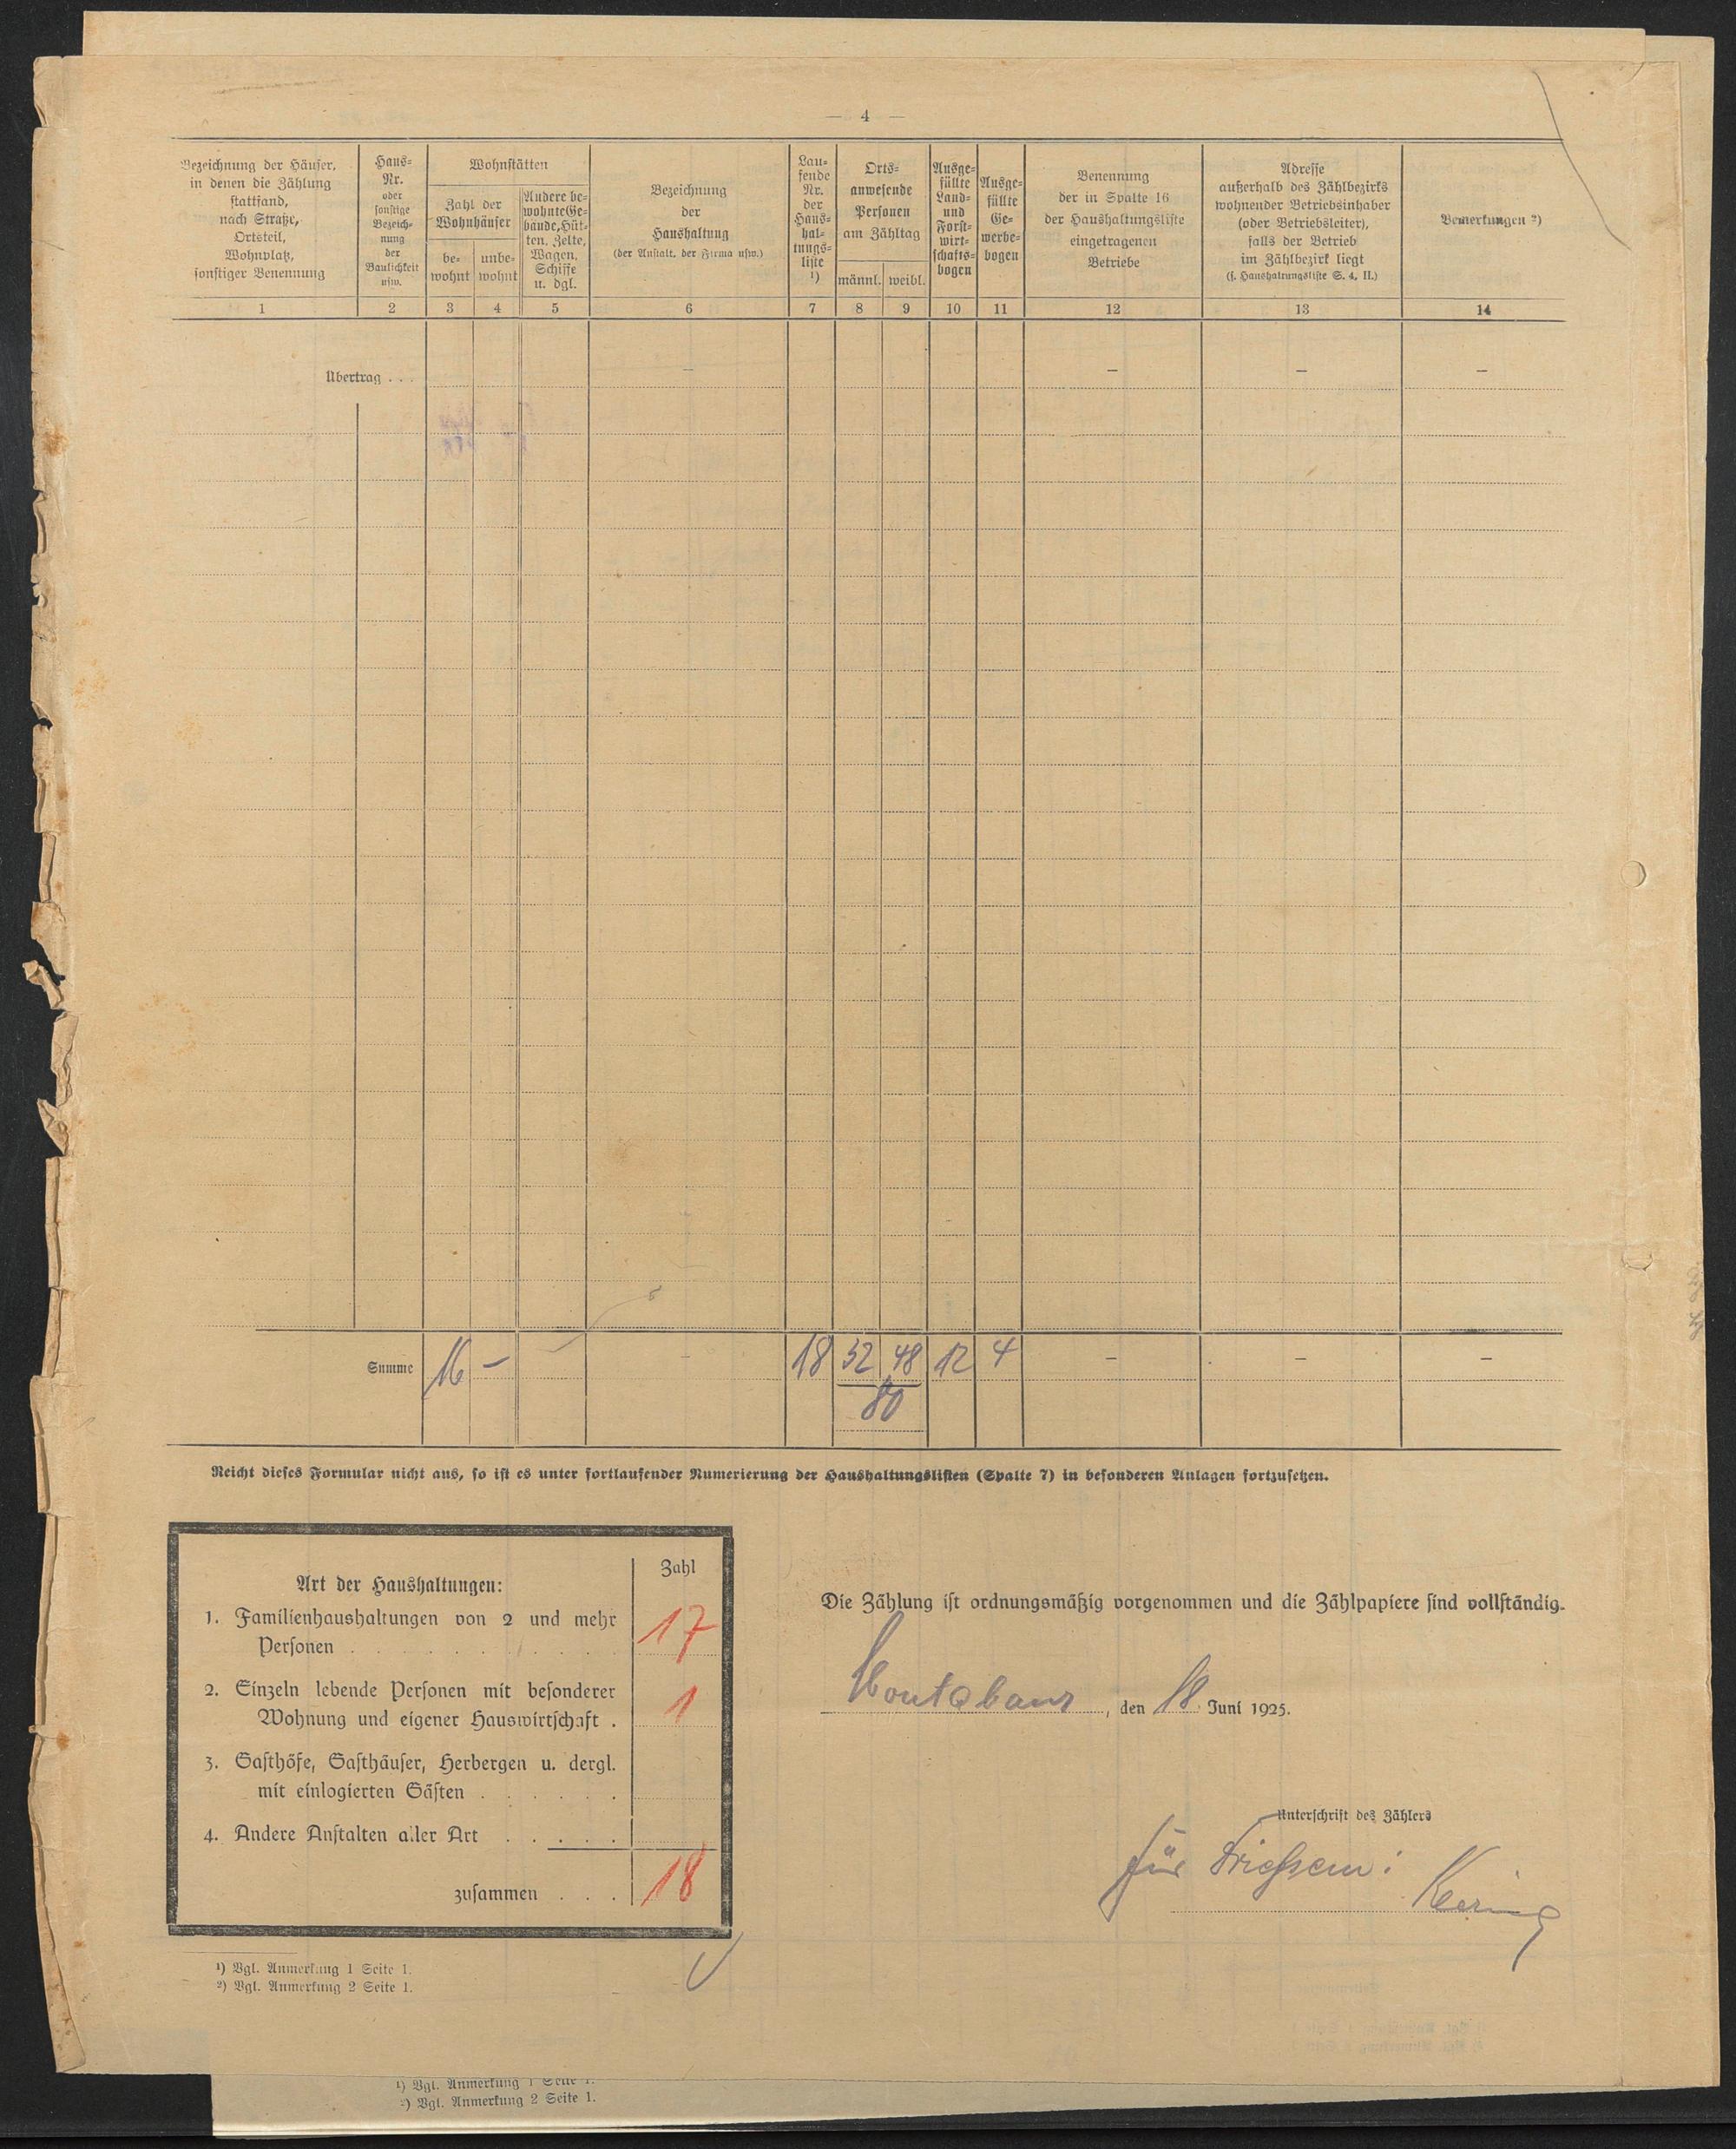 — 4 —
Bezeichnung der Häuser,
in denen die Zählung
stattfand,
nach Straße,
Ortsteil,
Wohnplatz,
sonstiger Benennung
Haus-
Nr.
oder
sonstige
Bezeich-
nung
der
Baulichkeit
usw.
Wohnstätten
Zahl der
Wohnhäuser
be-
wohnt
unbe-
wohnt
Andere be-
wohnte Ge-
bäude, Hüt-
ten, Zelte,
Wagen,
Schiffe
u. dgl.
Bezeichnung
der
Haushaltung
(der Anstalt, der Firma usw.)
Lau-
fende
Nr.
der
Haus-
hal-
tungs-
liste
¹)
Orts-
anwesende
Personen
am Zähltag
männl.
weibl.
Ausge-
füllte
Land-
und
Forst-
wirt-
schafts-
bogen
Ausge-
füllte
Ge-
werbe-
bogen
Benennung
der in Spalte 16
der Haushaltungsliste
eingetragenen
Betriebe
Adresse
außerhalb des Zählbezirks
wohnender Betriebsinhaber
(oder Betriebsleiter),
falls der Betrieb
im Zählbezirk liegt
(s. Haushaltungsliste S. 4, II.)
Bemerkungen ²)
1 2 3 4 5 6 7 8 9 10 11 12 13 14
Übertrag . . . — — — —
Summe 16 — — — 18 32 48 12 4 — — —
80
Reicht dieses Formular nicht aus, so ist es unter fortlaufender Numerierung der Haushaltungslisten (Spalte 7) in besonderen Anlagen fortzusetzen.
Zahl
Art der Haushaltungen:
1. Familienhaushaltungen von 2 und mehr
Personen . . . . . . . . . . . 17
2. Einzeln lebende Personen mit besonderer
Wohnung und eigener Hauswirtschaft . 1
3. Gasthöfe, Gasthäuser, Herbergen u. dergl.
mit einlogierten Gästen . . . . . .
4. Andere Anstalten aller Art . . . . .
zusammen . . . 18
Die Zählung ist ordnungsmäßig vorgenommen und die Zählpapiere sind vollständig.
Montabaur, den 18. Juni 1925.
Unterschrift des Zählers
für
¹) Vgl. Anmerkung 1 Seite 1.
²) Vgl. Anmerkung 2 Seite 1.
¹) Vgl. Anmerkung 1 Seite 1.
²) Vgl. Anmerkung 2 Seite 1.